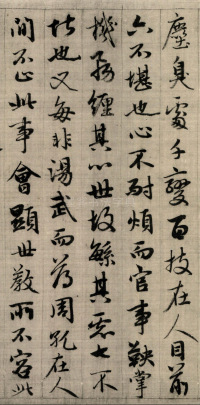 塵臭處千變百技在人目前
六不堪也心不耐煩而官事鞅掌
機務纏其心世故繁其慮七不
堪也又每非湯武而薄周孔在人
間不止此事會顯世教所不容此